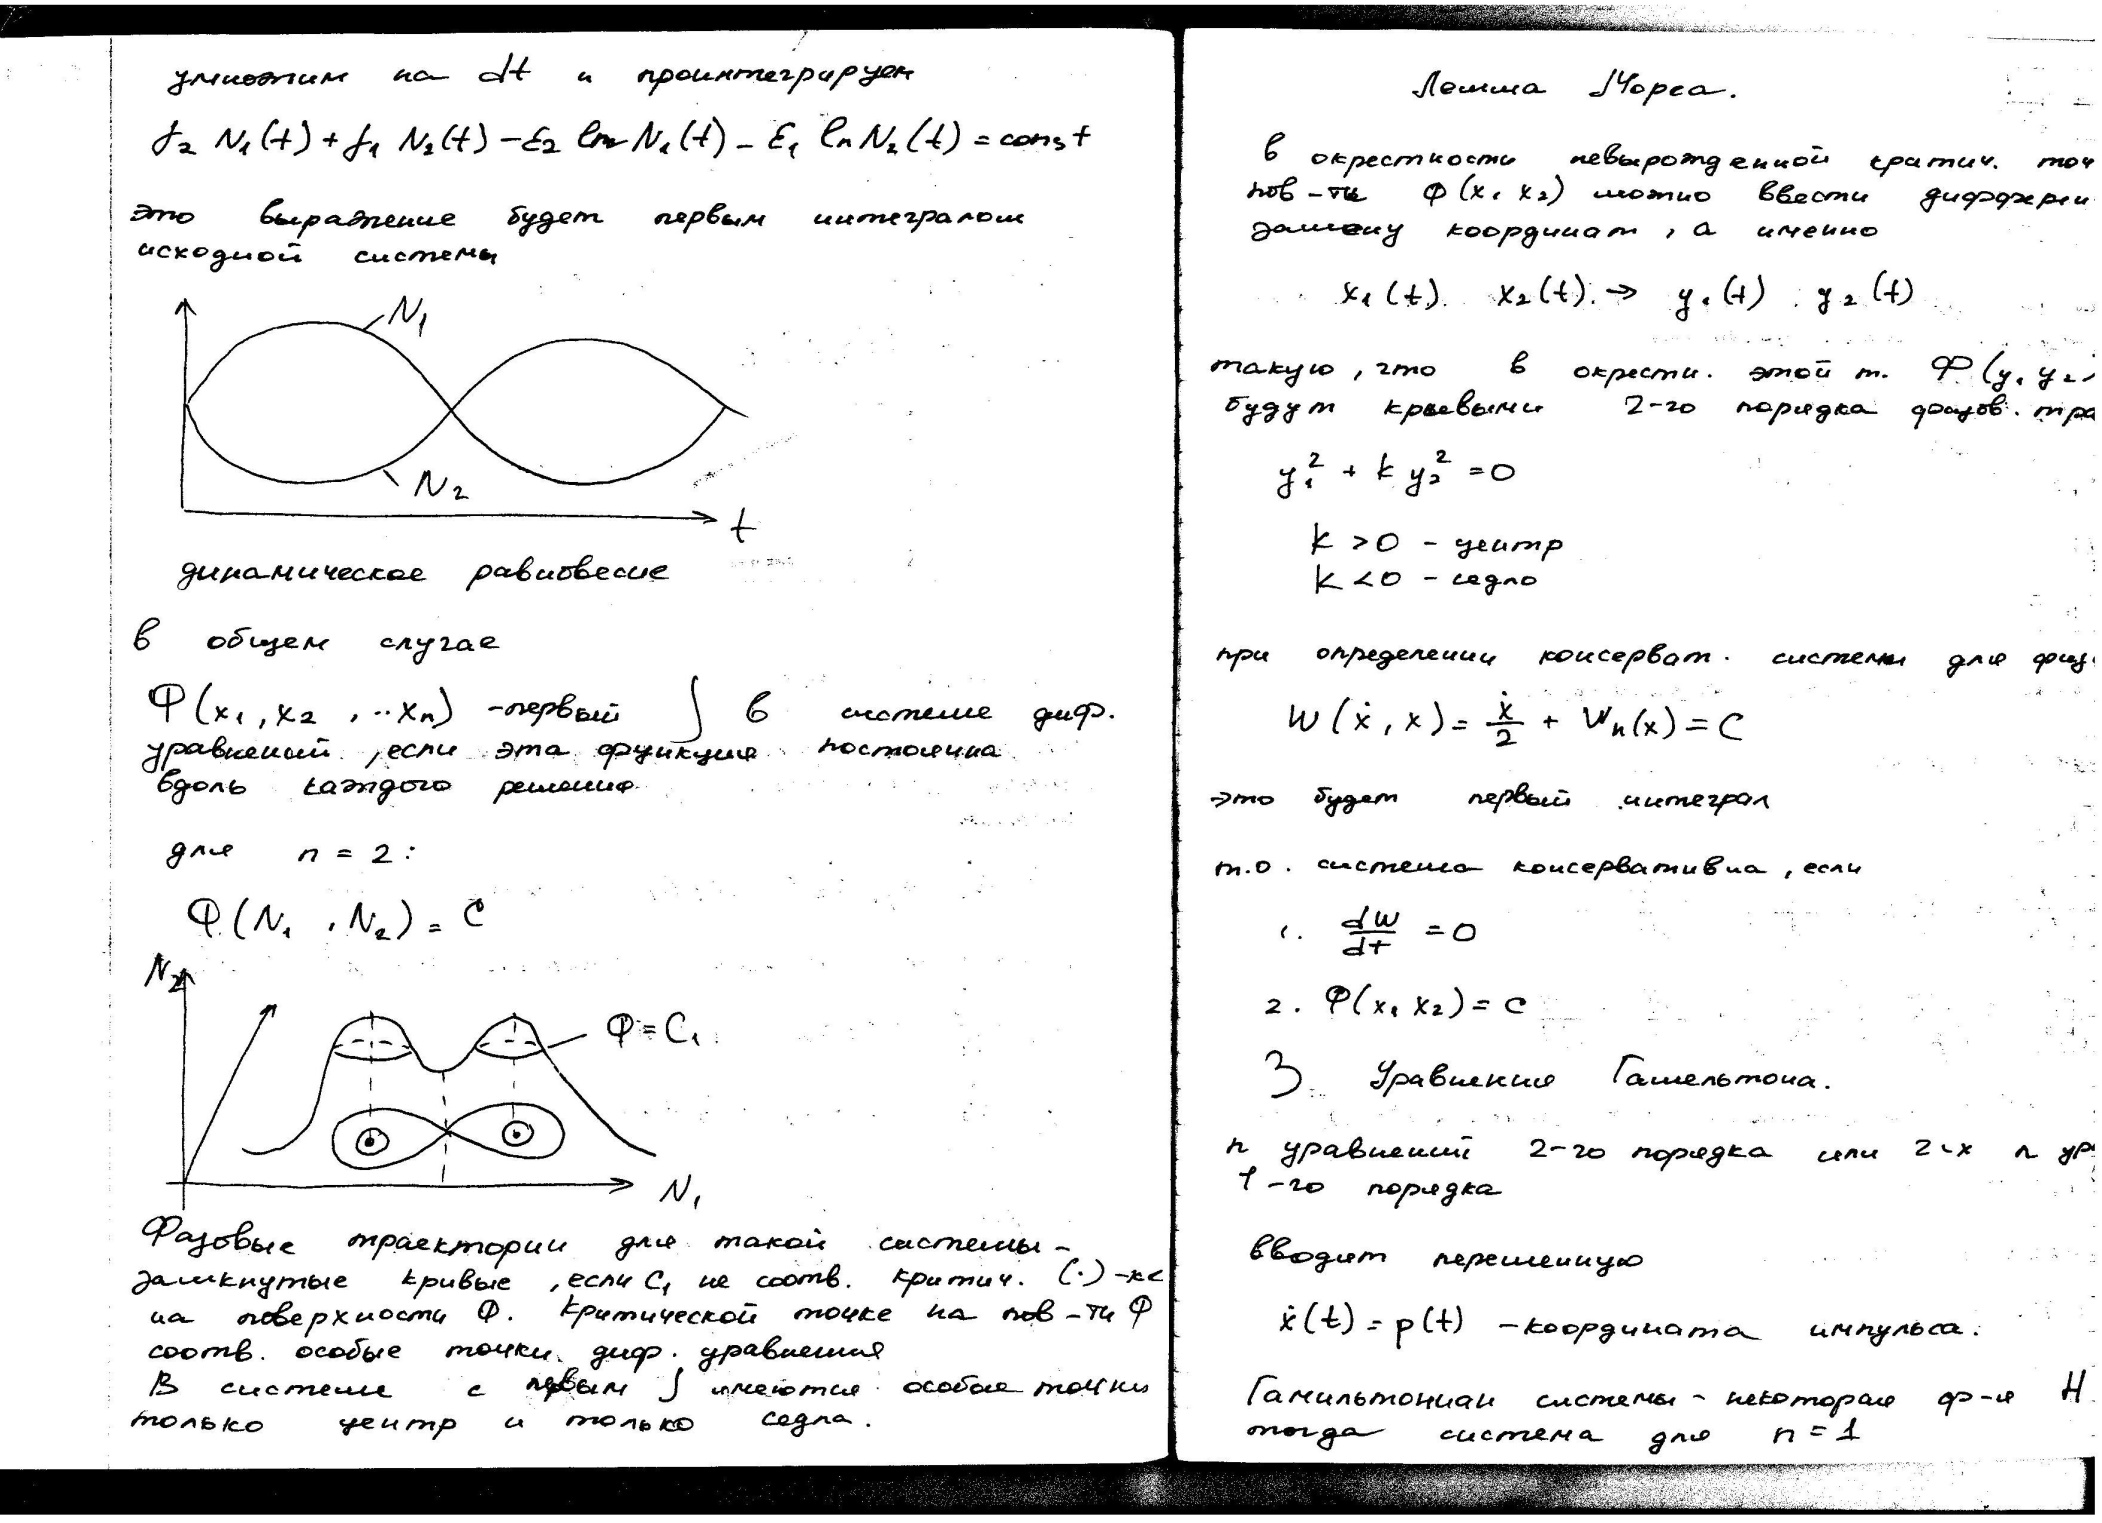 умножим на dt и проинтегрируем
γ₂ N₁(t) + γ₁ N₂(t) – ε₂ ln N₁(t) – ε₁ ln N₂(t) = const
это выражение будет первым интегралом
исходной системы
N₁
N₂
t
динамическое равновесие
в общем случае
Φ(x₁, x₂, ..xₙ) – первый ∫ в системе диф.
уравнений, если эта функция постоянна
вдоль каждого решения
для n = 2:
Φ(N₁, N₂) = C
N₂
Φ = C₁
N₁
Фазовые траектории для такой системы –
замкнутые кривые, если C₁ не соотв. критич. (·)
на поверхности Φ. Критической точке на пов-ти Φ
соотв. особые точки диф. уравнения
В системе с первым ∫ имеются особые точки
только центр и только седла.
Лемма Морса.
В окрестности невырожденной критич. точ
пов-ти Φ(x₁ x₂) можно ввести дифферен
замену координат, а именно
x₁(t) x₂(t) → y₁(t) y₂(t)
такую, что в окрестн. этой т. Φ(y₁ y₂)
будут кривыми 2-го порядка фазов. тра
y₁² + k y₂² = 0
k > 0 – центр
k < 0 – седло
при определении консерват. системы для физ.
W(ẋ, x) = ẋ/2 + Wₙ(x) = C
это будет первый интеграл
т.о. система консервативна, если
1. dW/dt = 0
2. Φ(x₁ x₂) = C
3. Уравнения Гамельтона.
n уравнений 2-го порядка или 2-х n ур
1-го порядка
вводит переменную
ẋ(t) = p(t) – координата импульса.
Гамильтониан системы – некоторая ф-я H
тогда система для n = 1